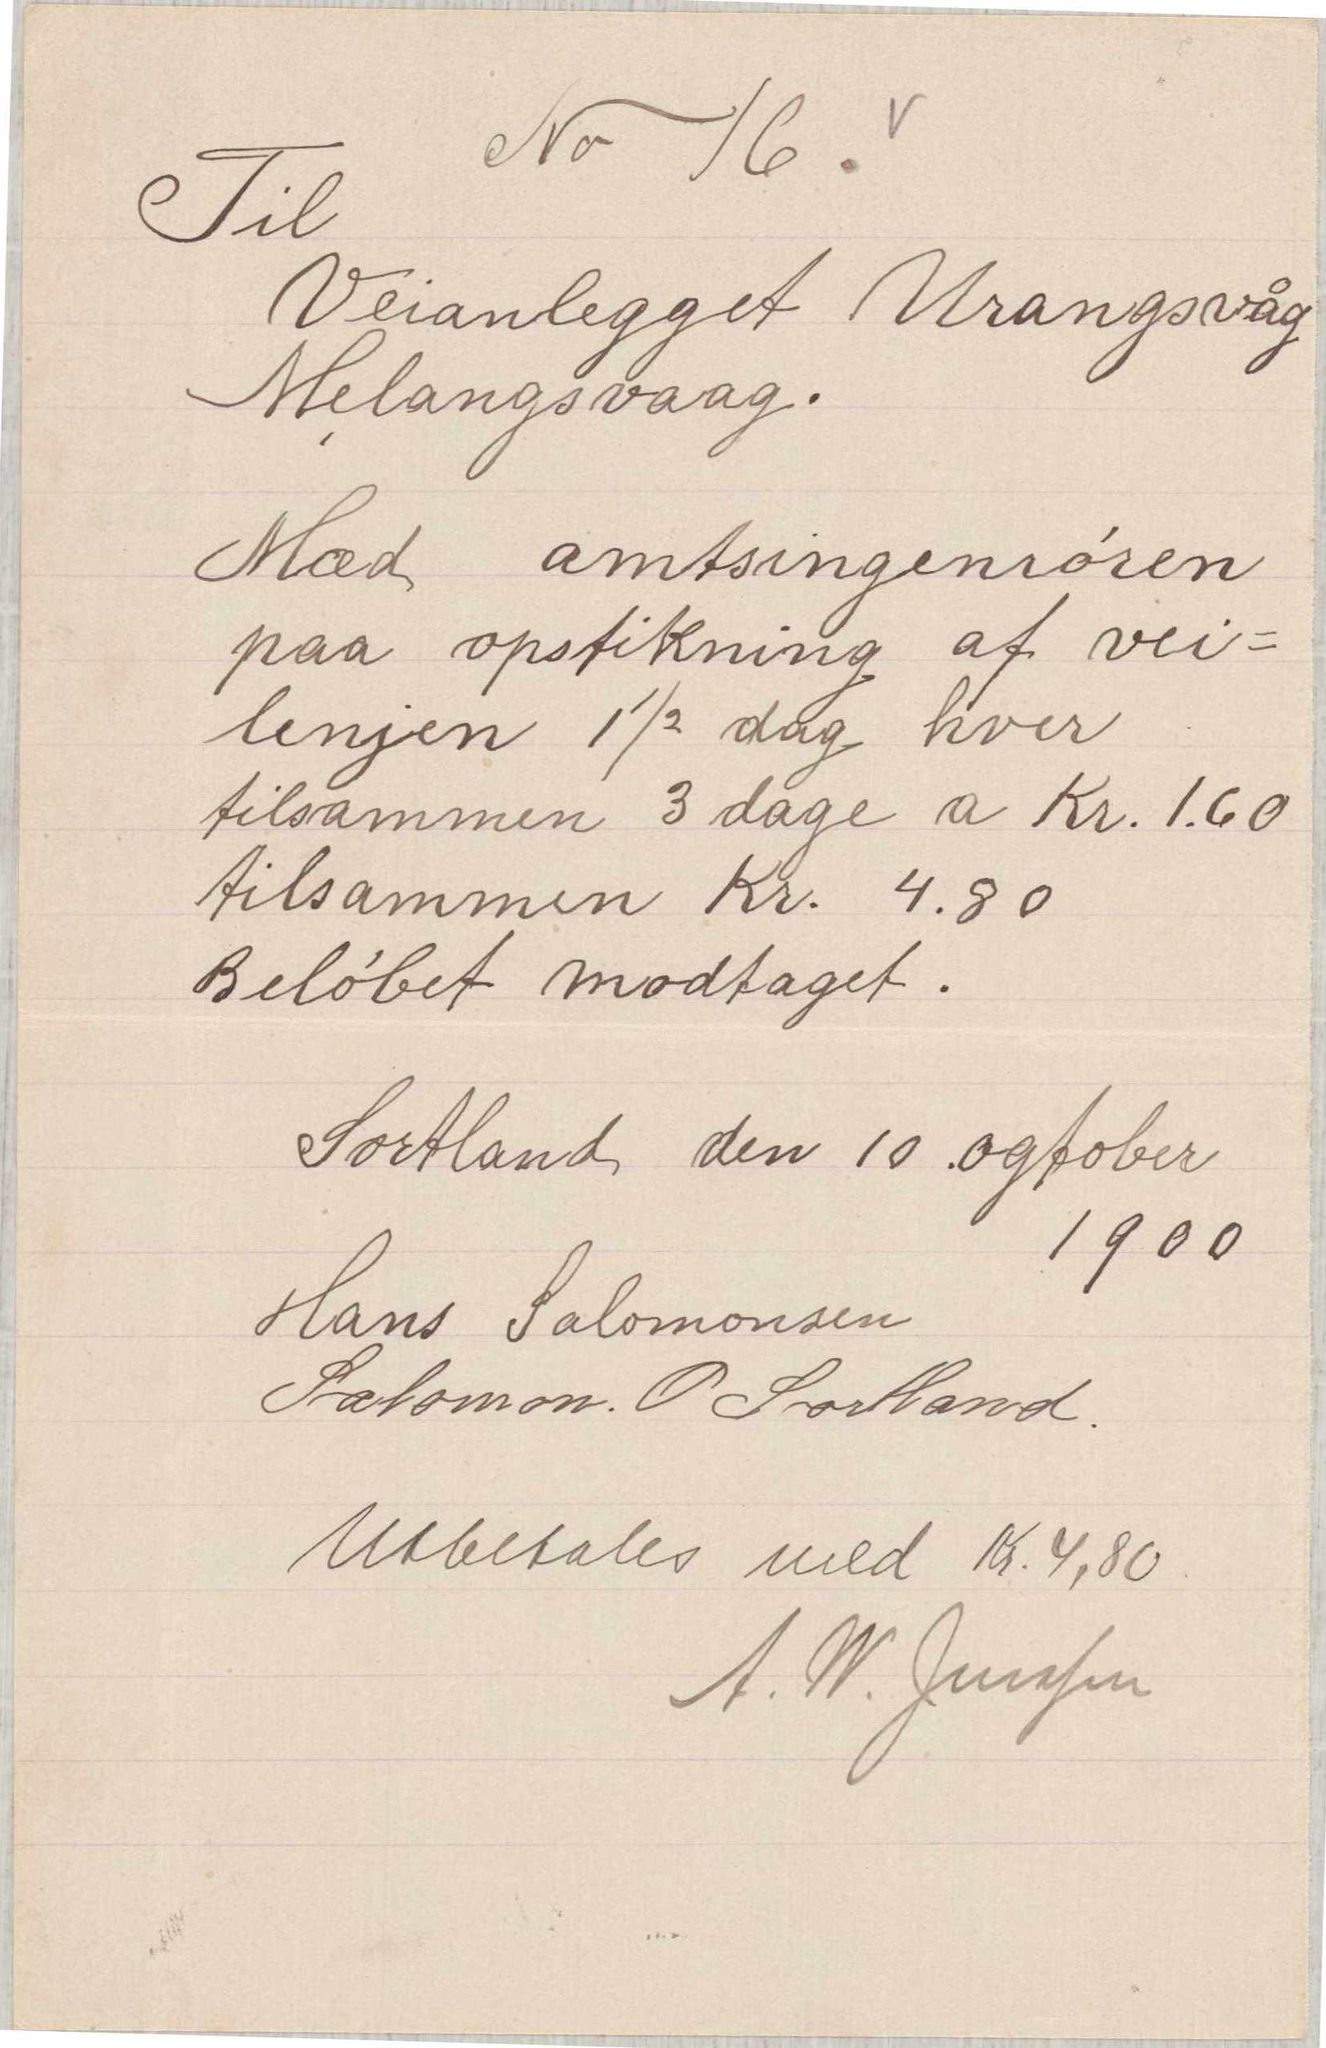 No 16. v
Til
Veianlegget Urangsvåg
Melangsvaag.
Mæd amtsingenióren
paa opstikning af vei=
lenjen 1 1/2 dag hver
tilsammen 3 dage a Kr. 1.60
tilsammen Kr. 4.80
Belóbet modtaget.
Sortland den 10. ogtober
1900
Hans Salomonsen
Salomon. O Sortland.
Utbetales med Kr. 4,80
A. W.